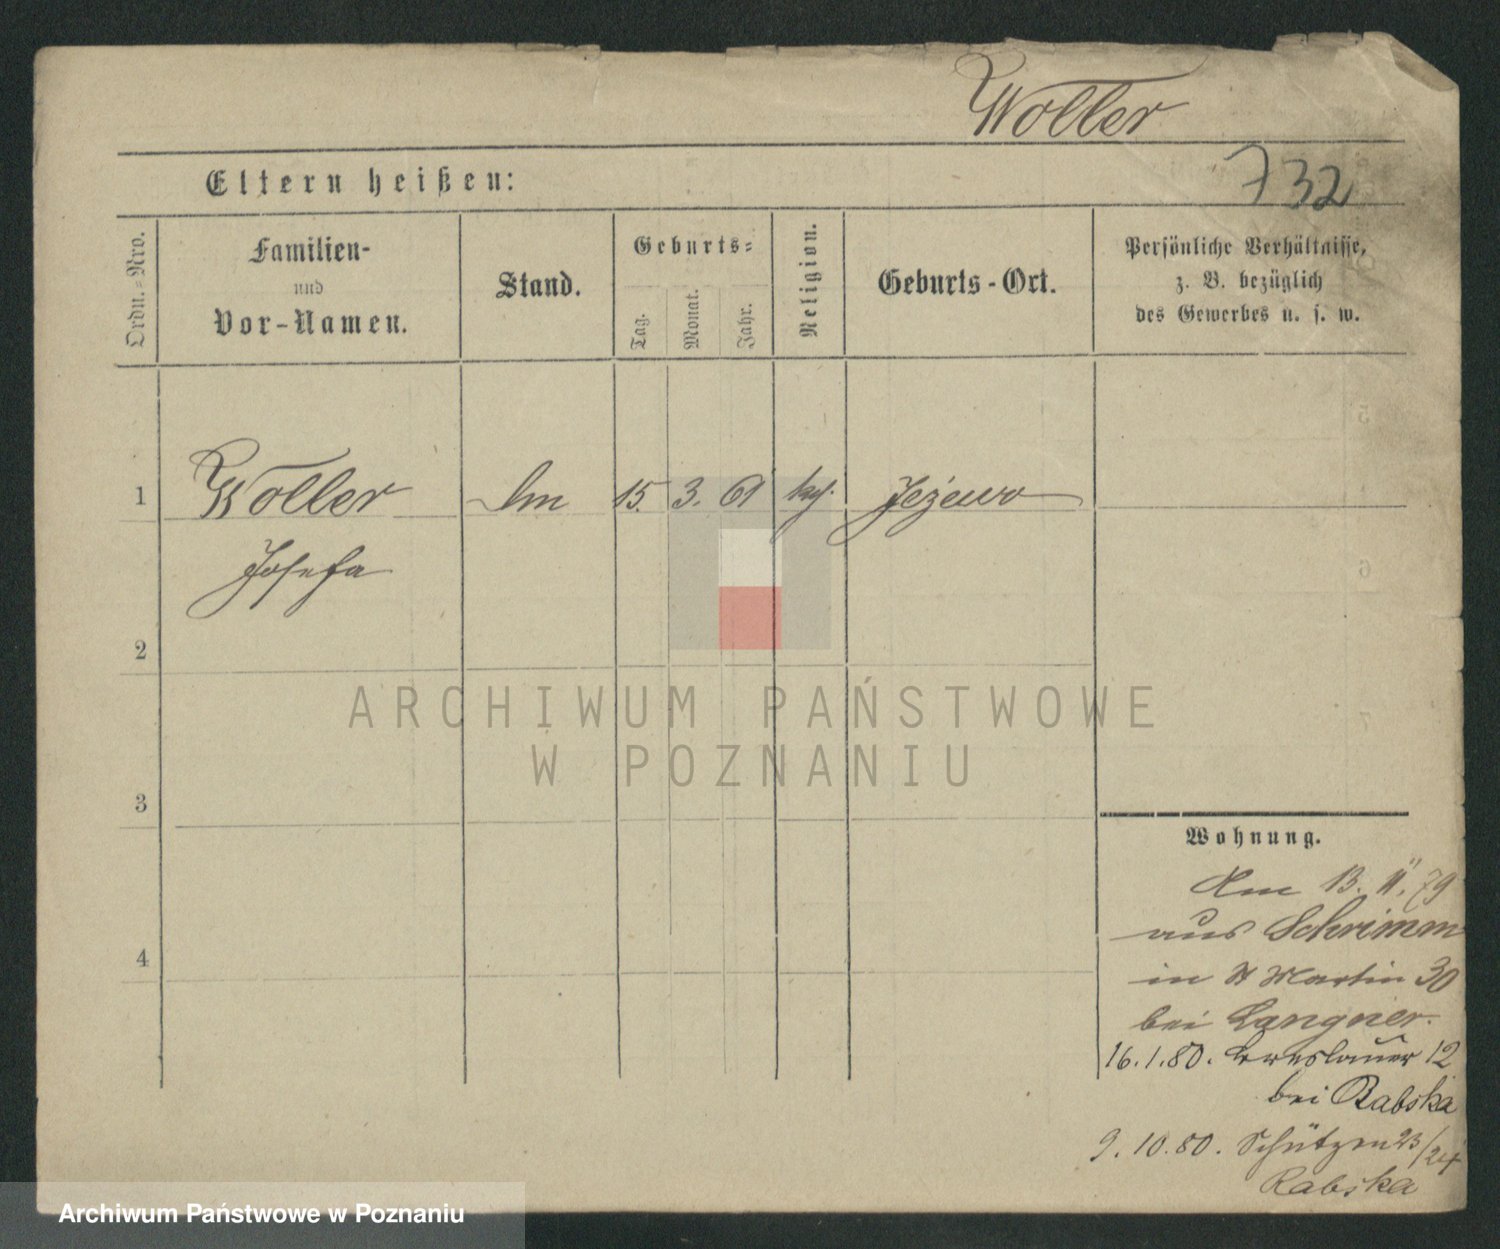 Woller
732
Eltern heißen:
Ordn.=Nro.
Familien-
und
Vor-Namen.
Stand.
Geburts=
Tag.
Monat.
Jahr.
Religion.
Geburts-Ort.
Persönliche Verhältnisse,
z. B. bezüglich
des Gewerbes u. s. w.
1
Woller 15. 3. 61 Jeżewo
Josefa
2
3
4
Wohnung.
13. 11. 79
aus Schrimm
in St Martin 30
bei Langner.
16.1.80. Breslauer 12
bei Rabska
9.10.80. Schützen 23/24
Rabska
ARCHIWUM PAŃSTWOWE
W POZNANIU
Archiwum Państwowe w Poznaniu